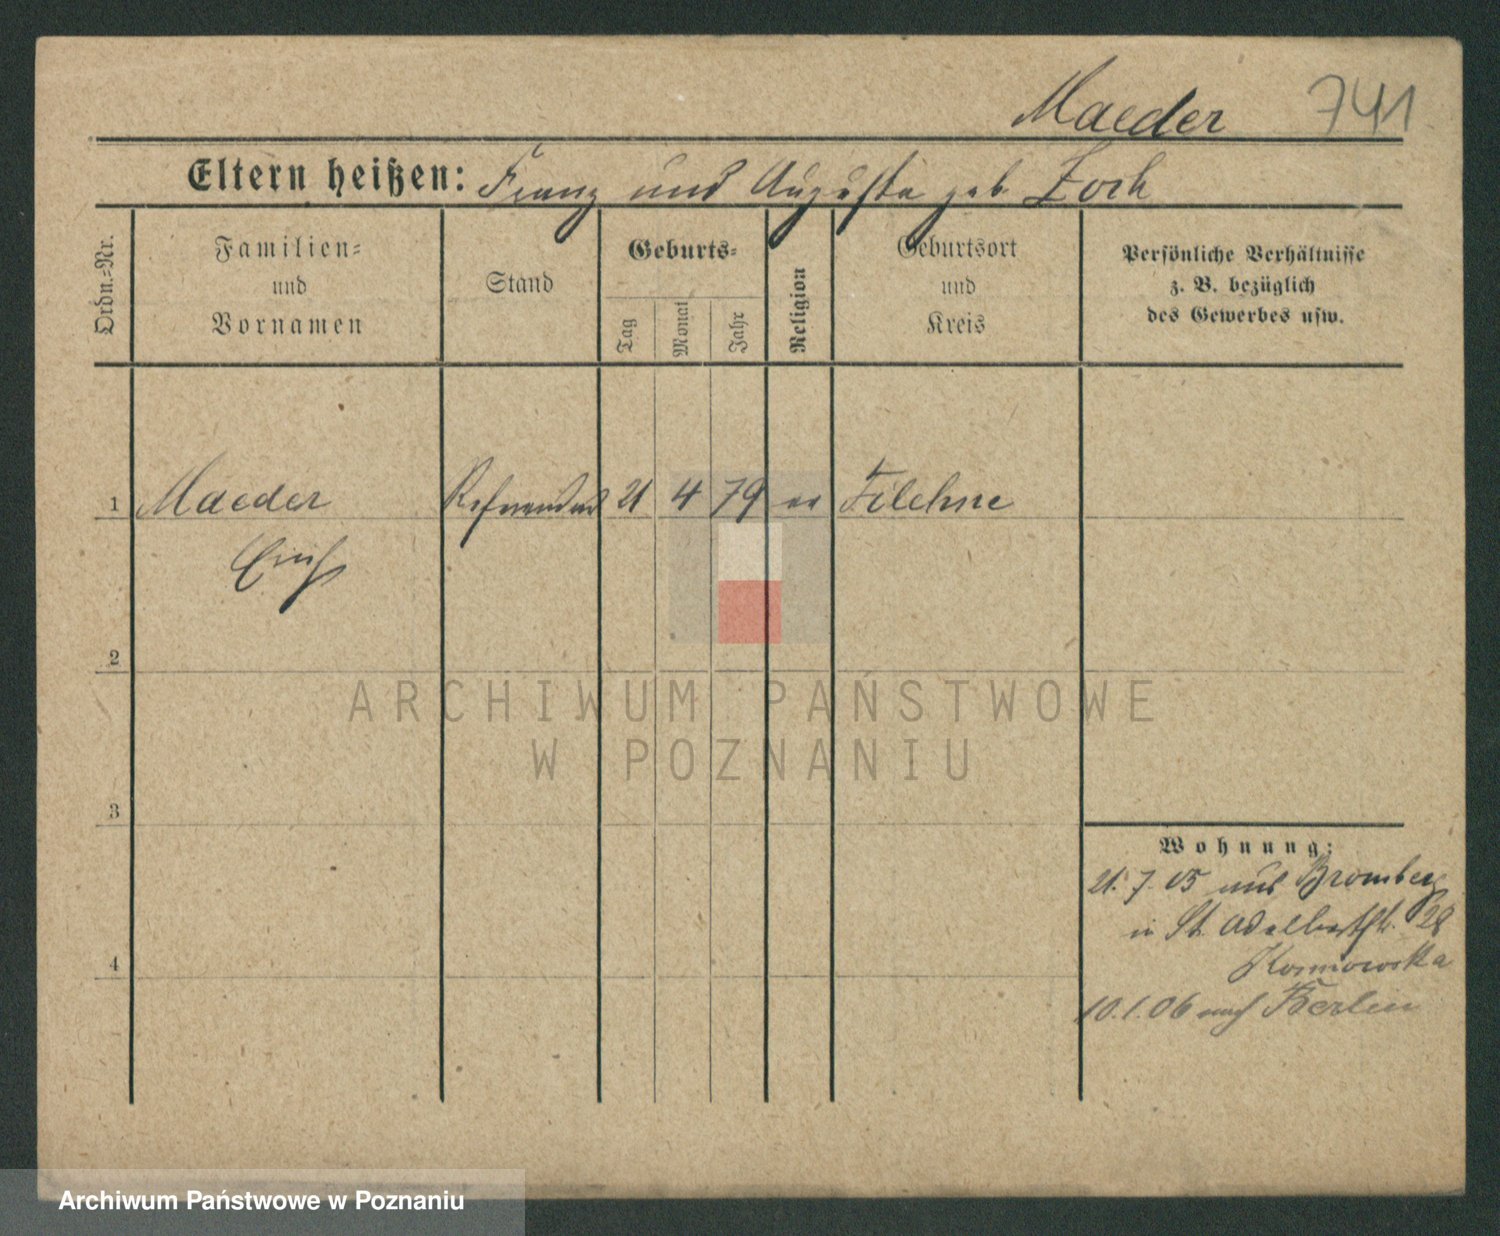 Maeder 741
Eltern heißen: Franz und Auguste geb Zoch
Ordn.-Nr.
Familien-
und
Vornamen
Stand
Geburts-
Tag
Monat
Jahr
Religion
Geburtsort
und
Kreis
Persönliche Verhältnisse
z. B. bezüglich
des Gewerbes usw.
1 Maeder Referendar 21 4 79 ev Filehne
Erich
2
ARCHIWUM PAŃSTWOWE
W POZNANIU
3
Wohnung:
21. 7. 05 aus Bromberg
in St. Adalbertstr. 28
10.1.06 nach Berlin
4
Archiwum Państwowe w Poznaniu